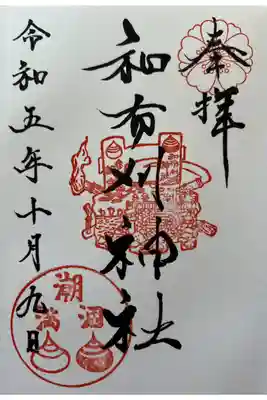 奉拝
和布刈神社
令和五年十月九日
潮
満